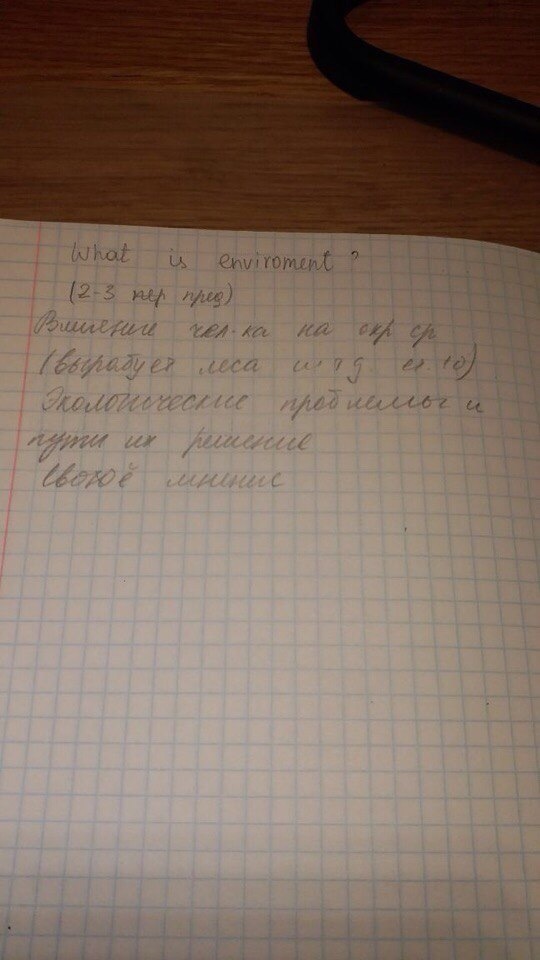 What is enviroment?
(2-3 пред)
Влияние чел-ка на окр ср
(вырабует леса и т д
Экологические проблемы и
пути их решение
Своё мнение